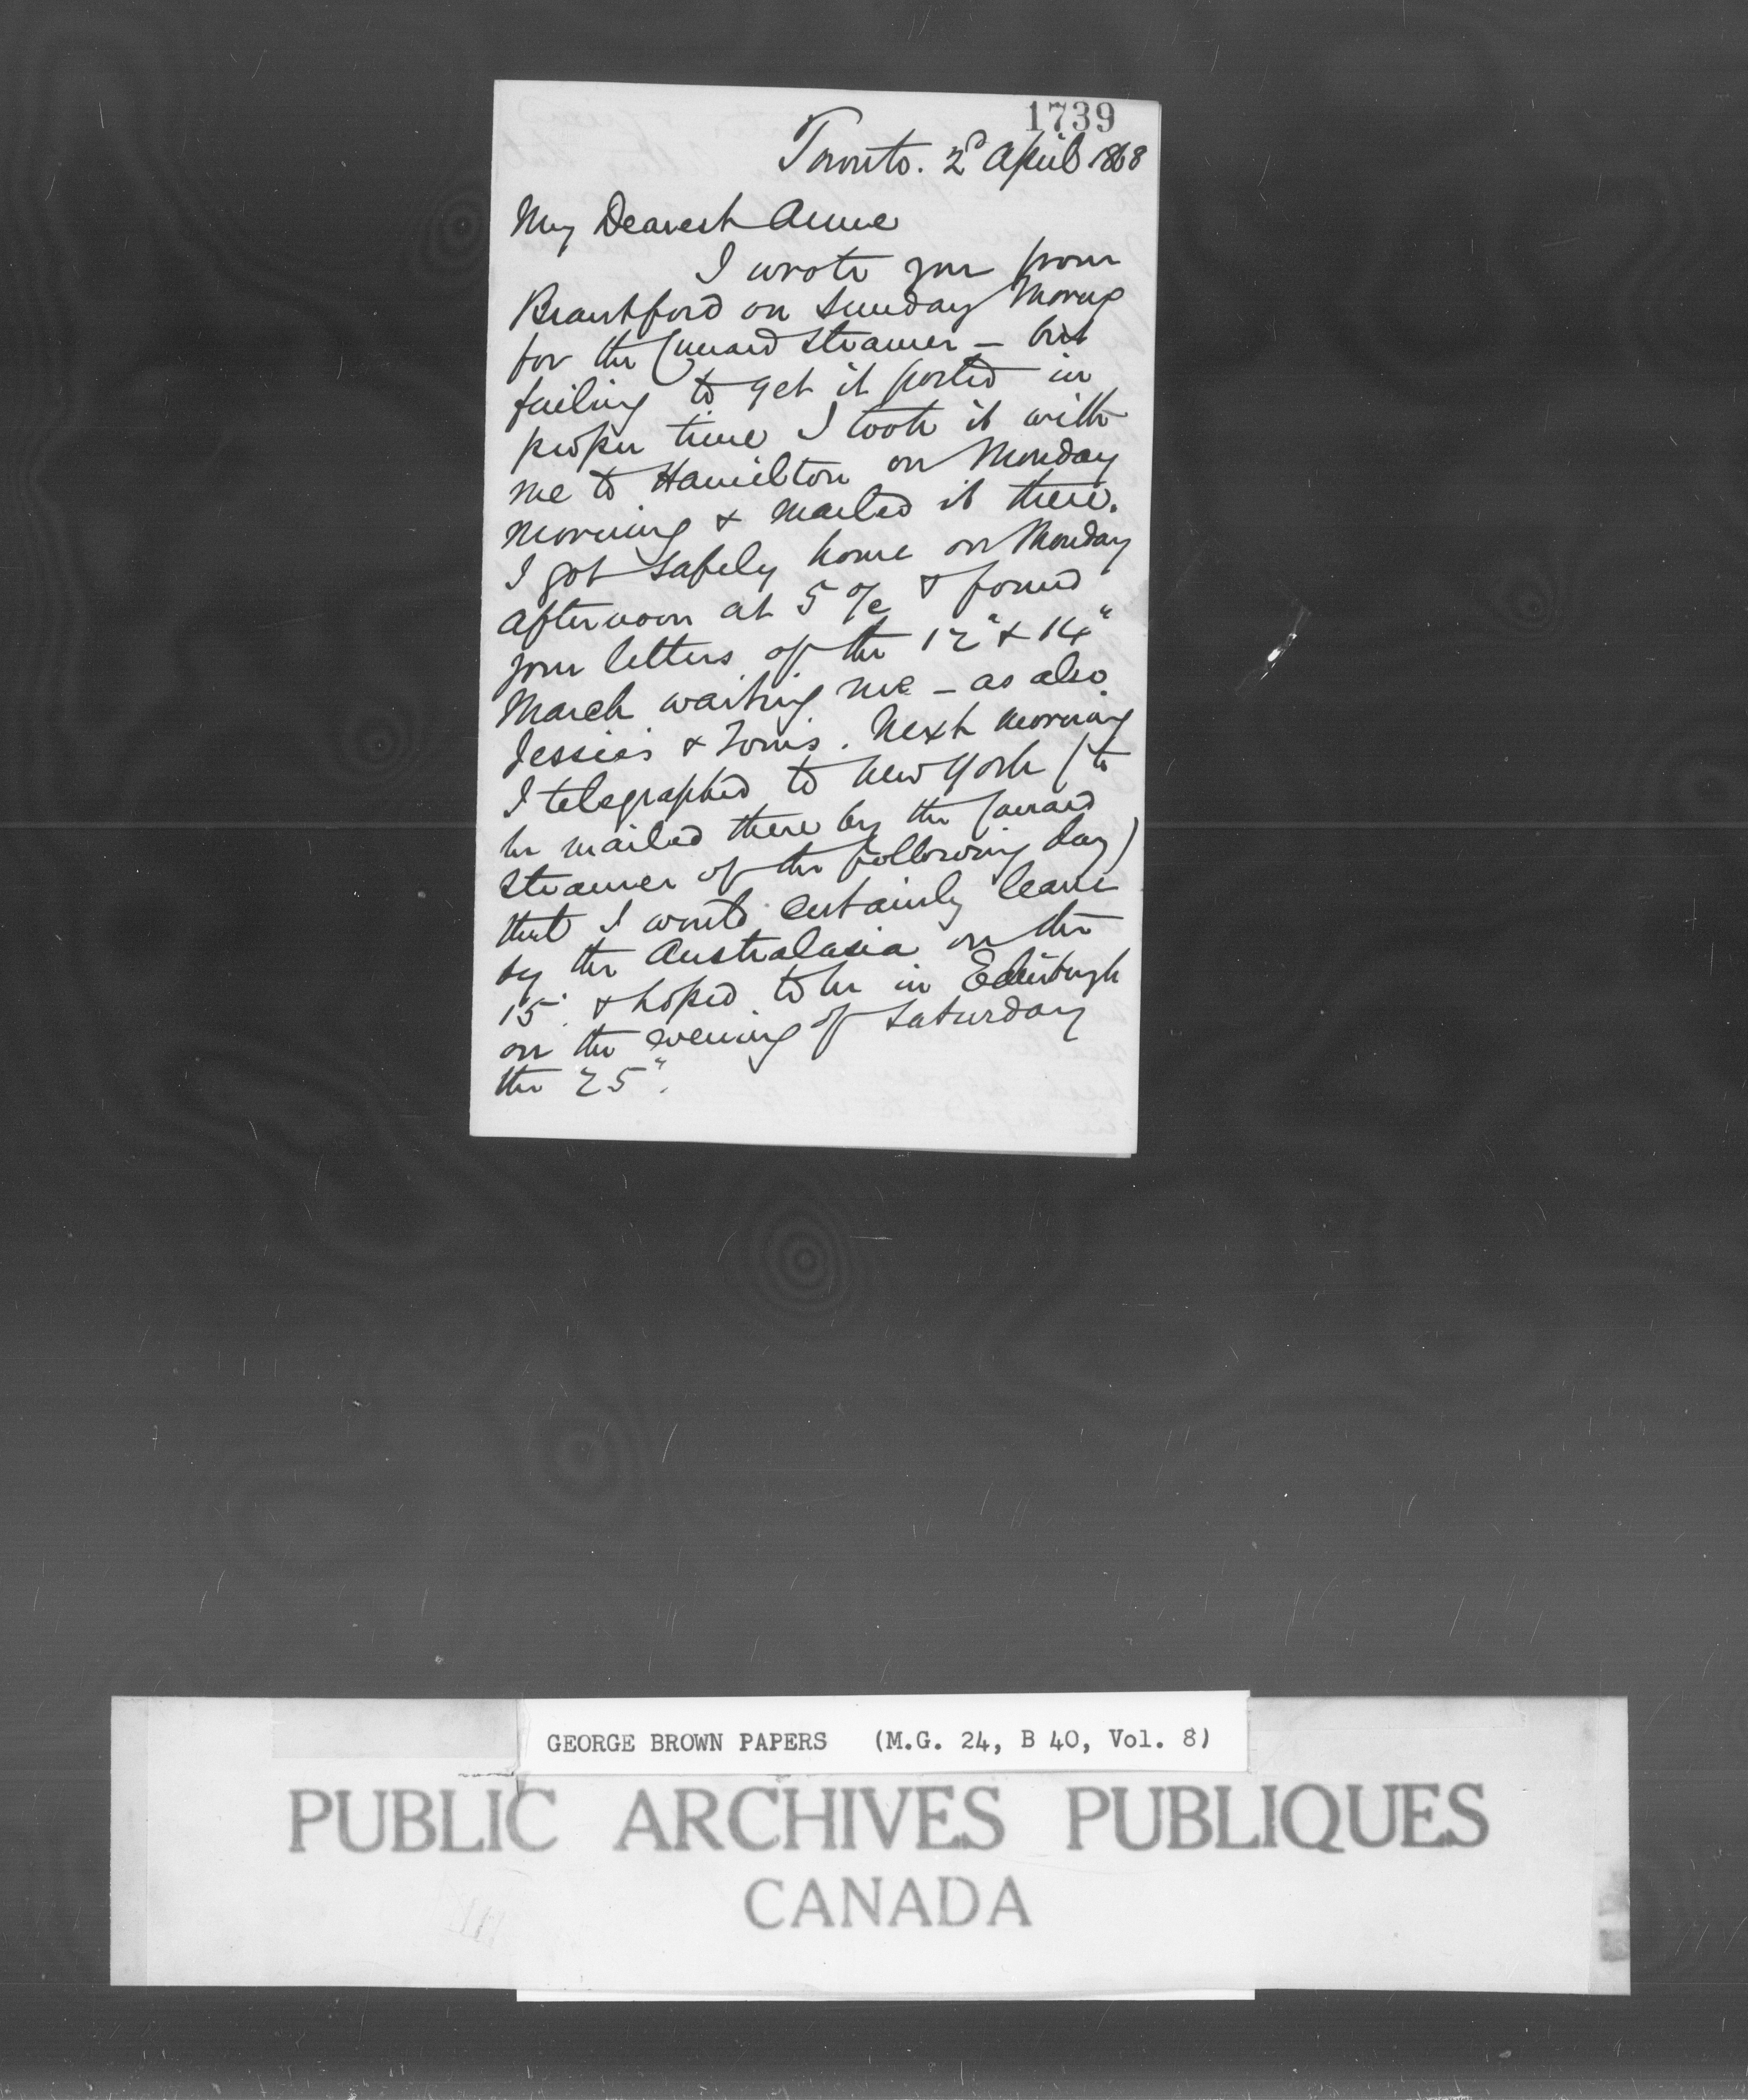 1739
Toronto. 2d April 1868
My Dearest Anne
I wrote you from
Brantford on Sunday Morng
for the Cunard Steamer – but
failing to get it posted in
proper time I took it with
me to Hamilton on Monday
morning & mailed it there.
I got safely home on Monday
afternoon at 5 & found
your letters of the 12" & 14"
March waiting me – as also
Jessie's & Tom's. Next morning
I telegraphed to New York (to
be mailed there by the Cunard
Steamer of the following day)
that I would certainly leave
by the Australasia on the
15". & hoped to be in Edinburgh
on the evening of Saturday
the 25".
GEORGE BROWN PAPERS (M.G. 24, B 40, Vol. 8)
PUBLIC ARCHIVES PUBLIQUES
CANADA